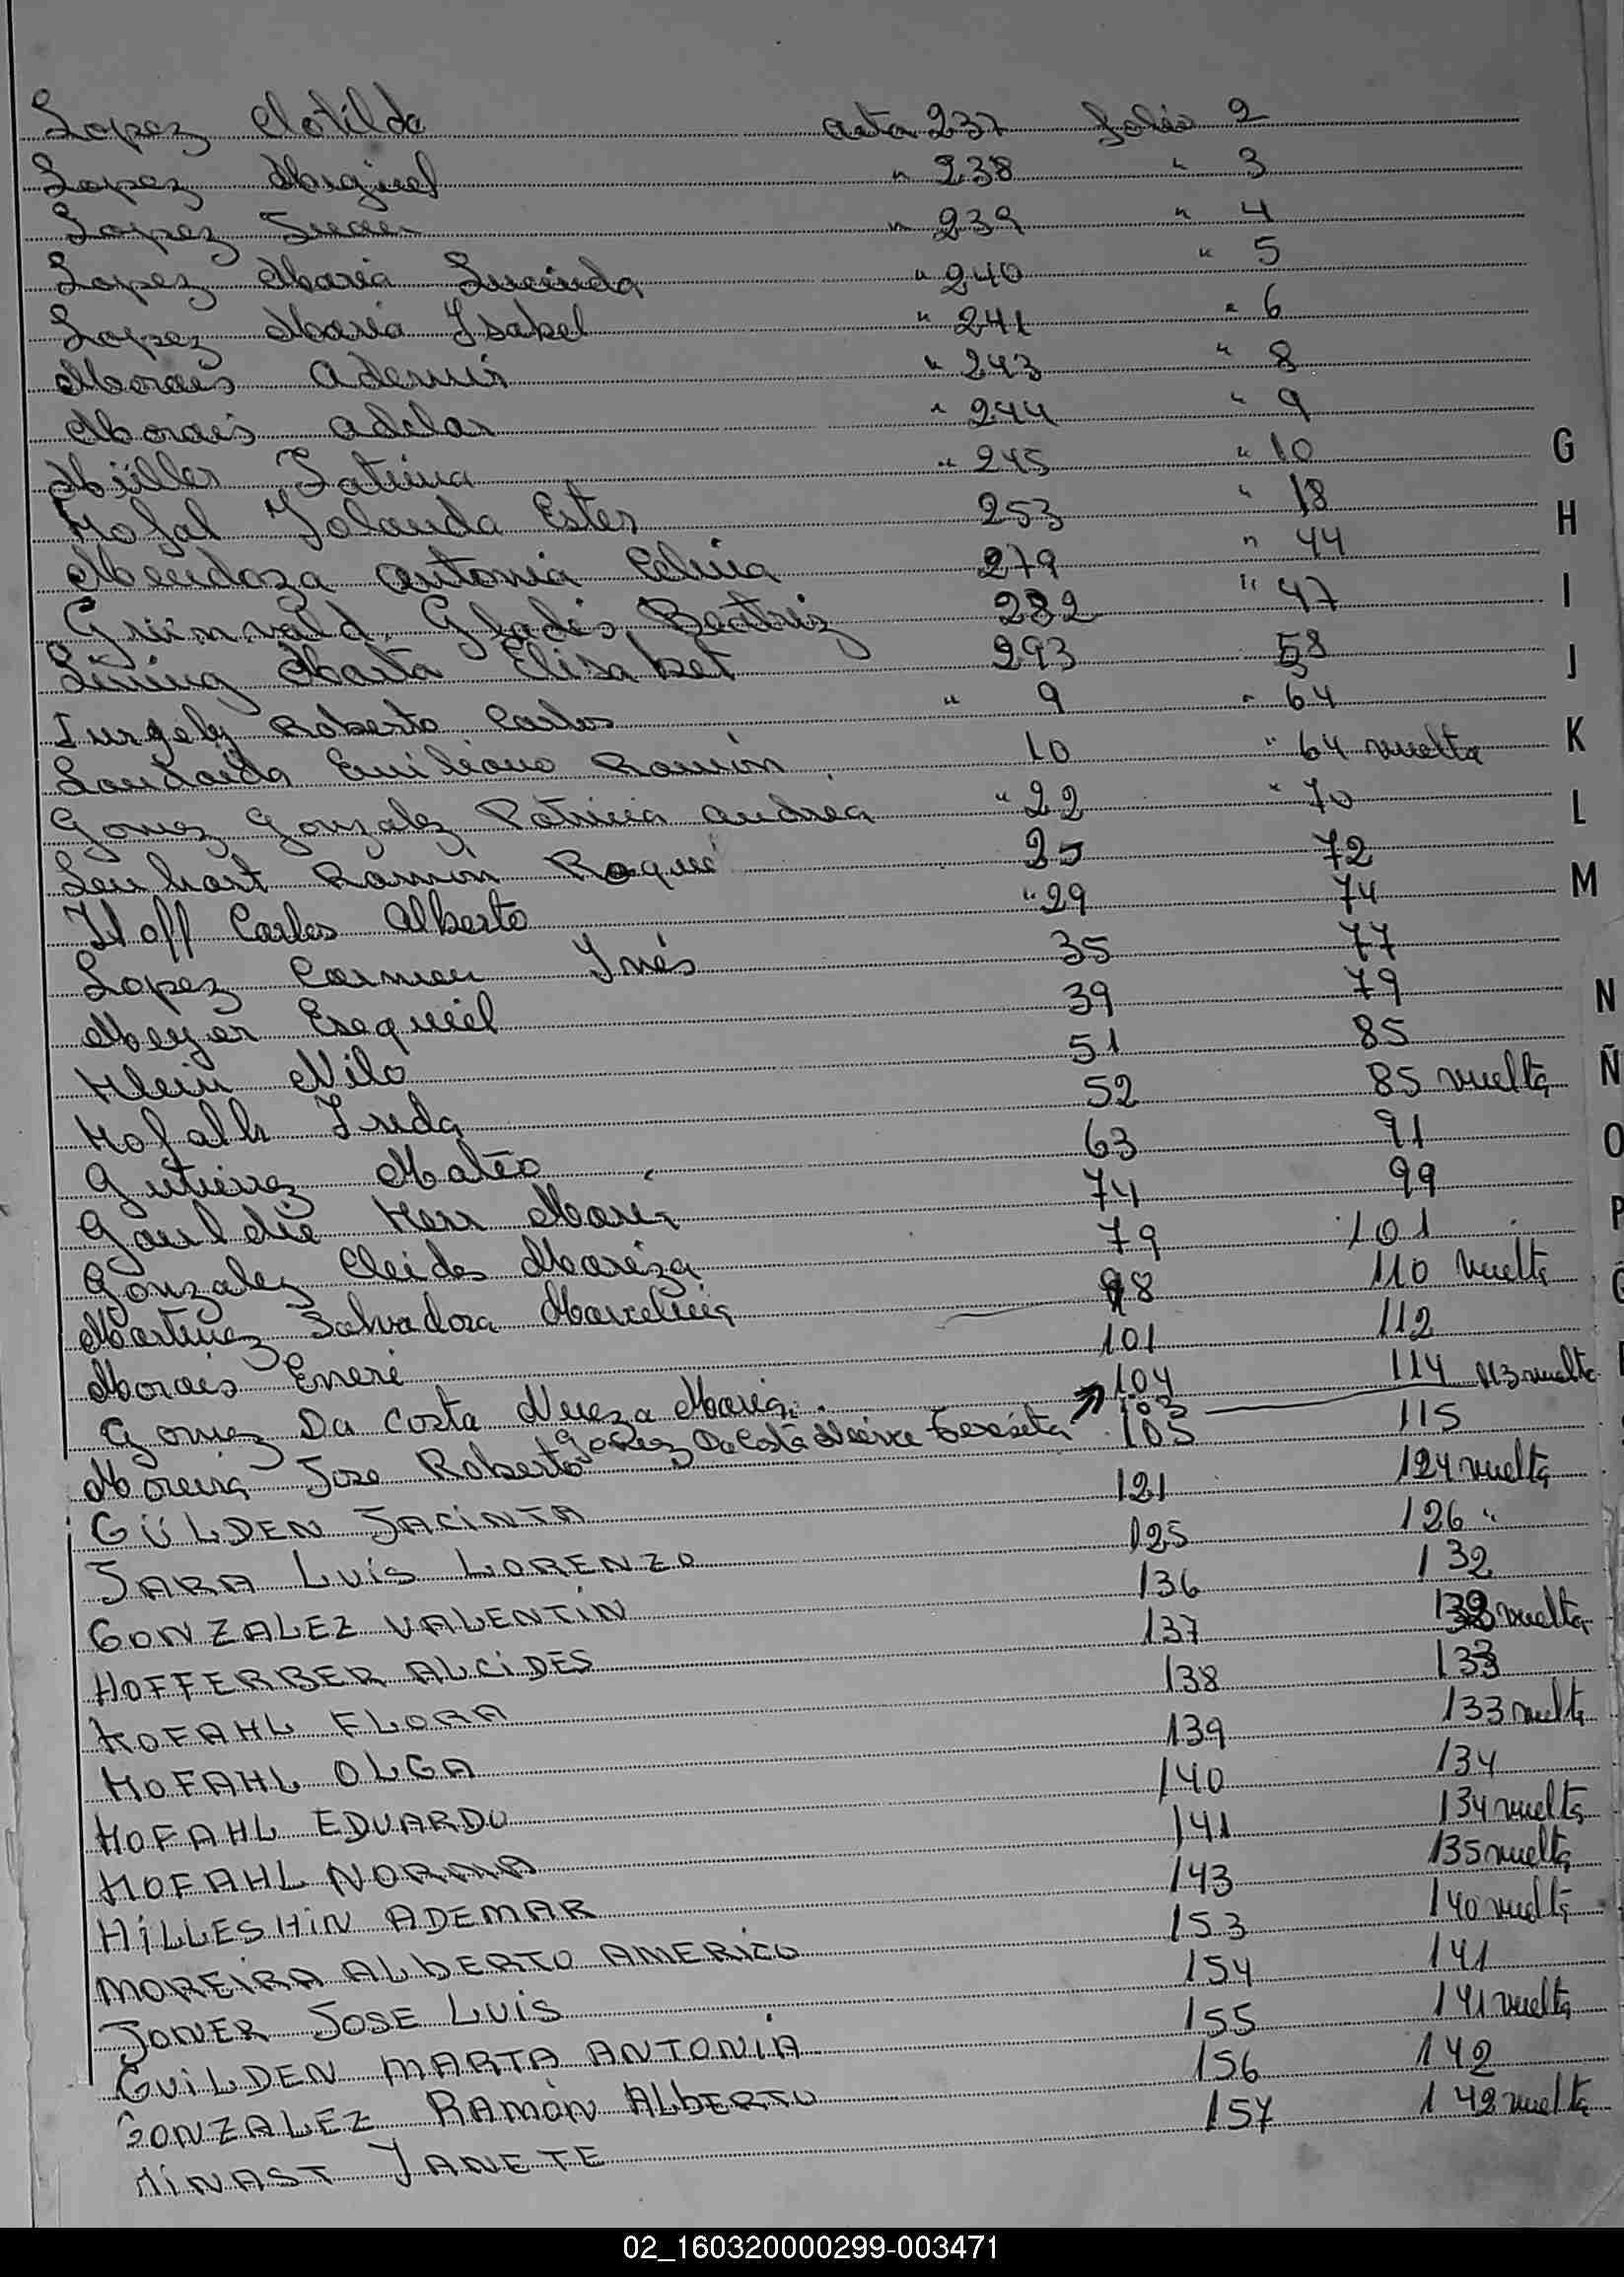 Lopez Clotilda acta 237 folio 2
Lopez Miguel " 238 " 3
Lopez Juan " 239 " 4
Lopez Maria Lucinda " 240 " 5
Lopez Maria Ysabel " 241 " 6
Morais Ademir " 243 " 8
Morais Adelar " 244 " 9
Müller Fatima " 245 " 10
Hofal Yolanda Ester 253 " 18
Mendoza Antonia Celina 279 " 44
Grünvald Gladis Beatriz 282 " 47
Marta Elisabet 293 58
Roberto Carlos " 9 " 64
Emiliano Ramón 10 " 64 vuelta
Gomez Gonzalez Patricia Andrea " 22 " 70
Lenhart Ramón Roque 25 72
Hoff Carlos Alberto " 29 74
Lopez Carmen Ynés 35 77
Meyer Esequiel 39 79
Klein Nilo 51 85
Hofalh Frida 52 85 vuelta
Gutierrez Mateo 63 91
Herr Maria 74 99
Gonzalez Cleides Mariza 79 101
Martinez Salvadora Marcelina 98 110 vuelta
Morais Eneri 101 112
Gomez Da Costa Nereza Maria 104 114
Gomez Da Costa Teresita 103 113 vuelta
Moreira Jose Roberto 105 115
GÜLDEN JACINTA 121 124 vuelta
JARA LUÍS LORENZO 125 126 "
GONZALEZ VALENTÍN 136 132
HOFFERBER ALCIDES 137 132 vuelta
HOFAHL FLORA 138 133
HOFAHL OLGA 139 133 vuelta
HOFAHL EDUARDO 140 134
HOFAHL NORMA 141 134 vuelta
HILLESHIN ADEMAR 143 135 vuelta
MOREIRA ALBERTO AMERICO 153 140 vuelta
JONER JOSE LUIS 154 141
GUILDEN MARTA ANTONIA 155 141 vuelta
GONZALEZ RAMÓN ALBERTO 156 142
MINAST YANETE 157 142 vuelta
G
H
I
J
K
L
M
N
Ñ
O
P
02_160320000299-003471